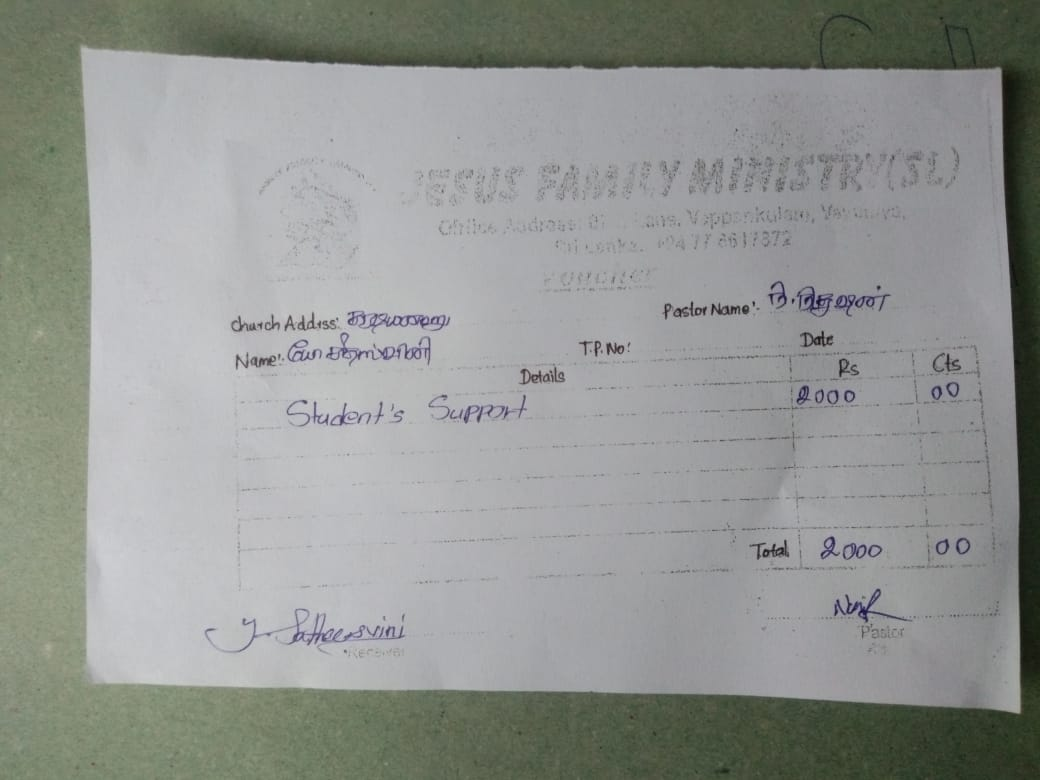 JESUS FAMILY MINISTRY(SL)
Office Address: Lane, Vappankulam, Vavuniya,
Sri Lanka. +94 77 8617372
VOUCHER
Pastor Name:
Church Addrss:
Name:
T.P.No:
Date
Details Rs Cts
Student's Support 2000 00
Total 2000 00
Y. Satheesvini
Receiver
Pastor